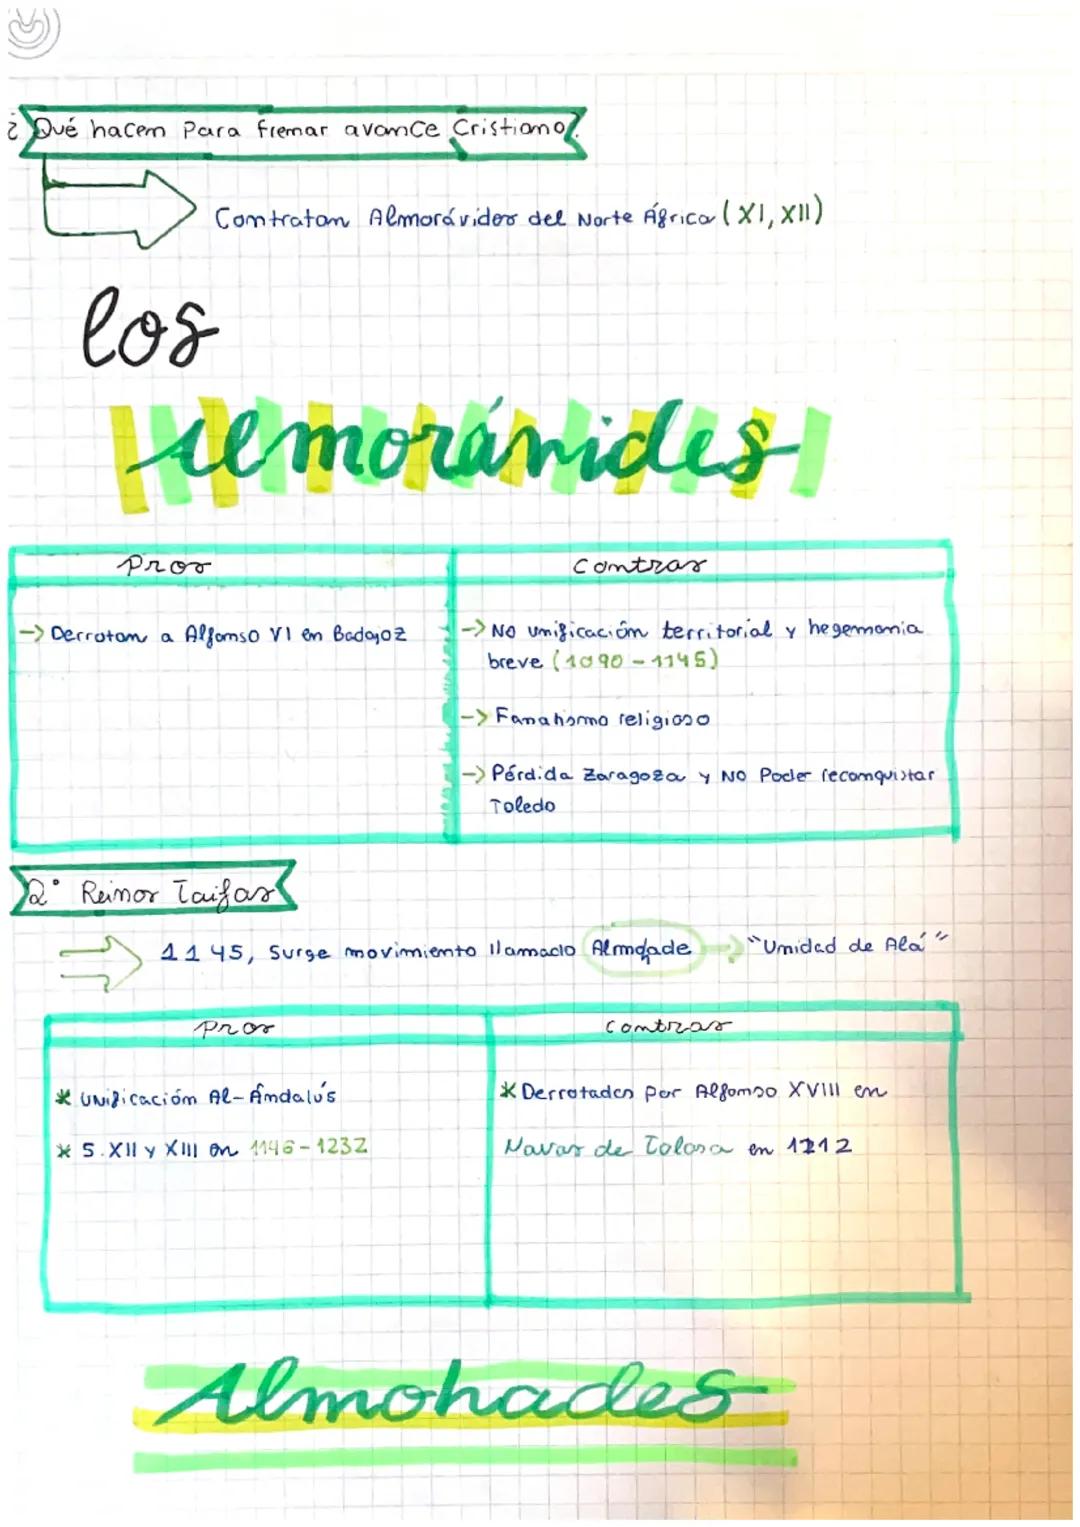 ¿Qué hacen para frenar avance Cristiano?
Contratan Almorávides del Norte África (XI, XII)
los
almorávides
Pros
Contras
-> Derrotan a Alfonso VI en Badajoz
-> No unificación territorial y hegemonia
breve (1090 - 1145)
-> Fanatismo religioso
-> Pérdida Zaragoza y NO Poder reconquistar
Toledo
2º Reinos Taifas
1145, Surge movimiento llamado Almohade -> "Unidad de Alá"
Pros
Contras
* Unificación Al-Ándalús
* S. XII y XIII en 1146-1232
* Derrotados por Alfonso XVIII en
Navas de Tolosa en 1212
Almohades